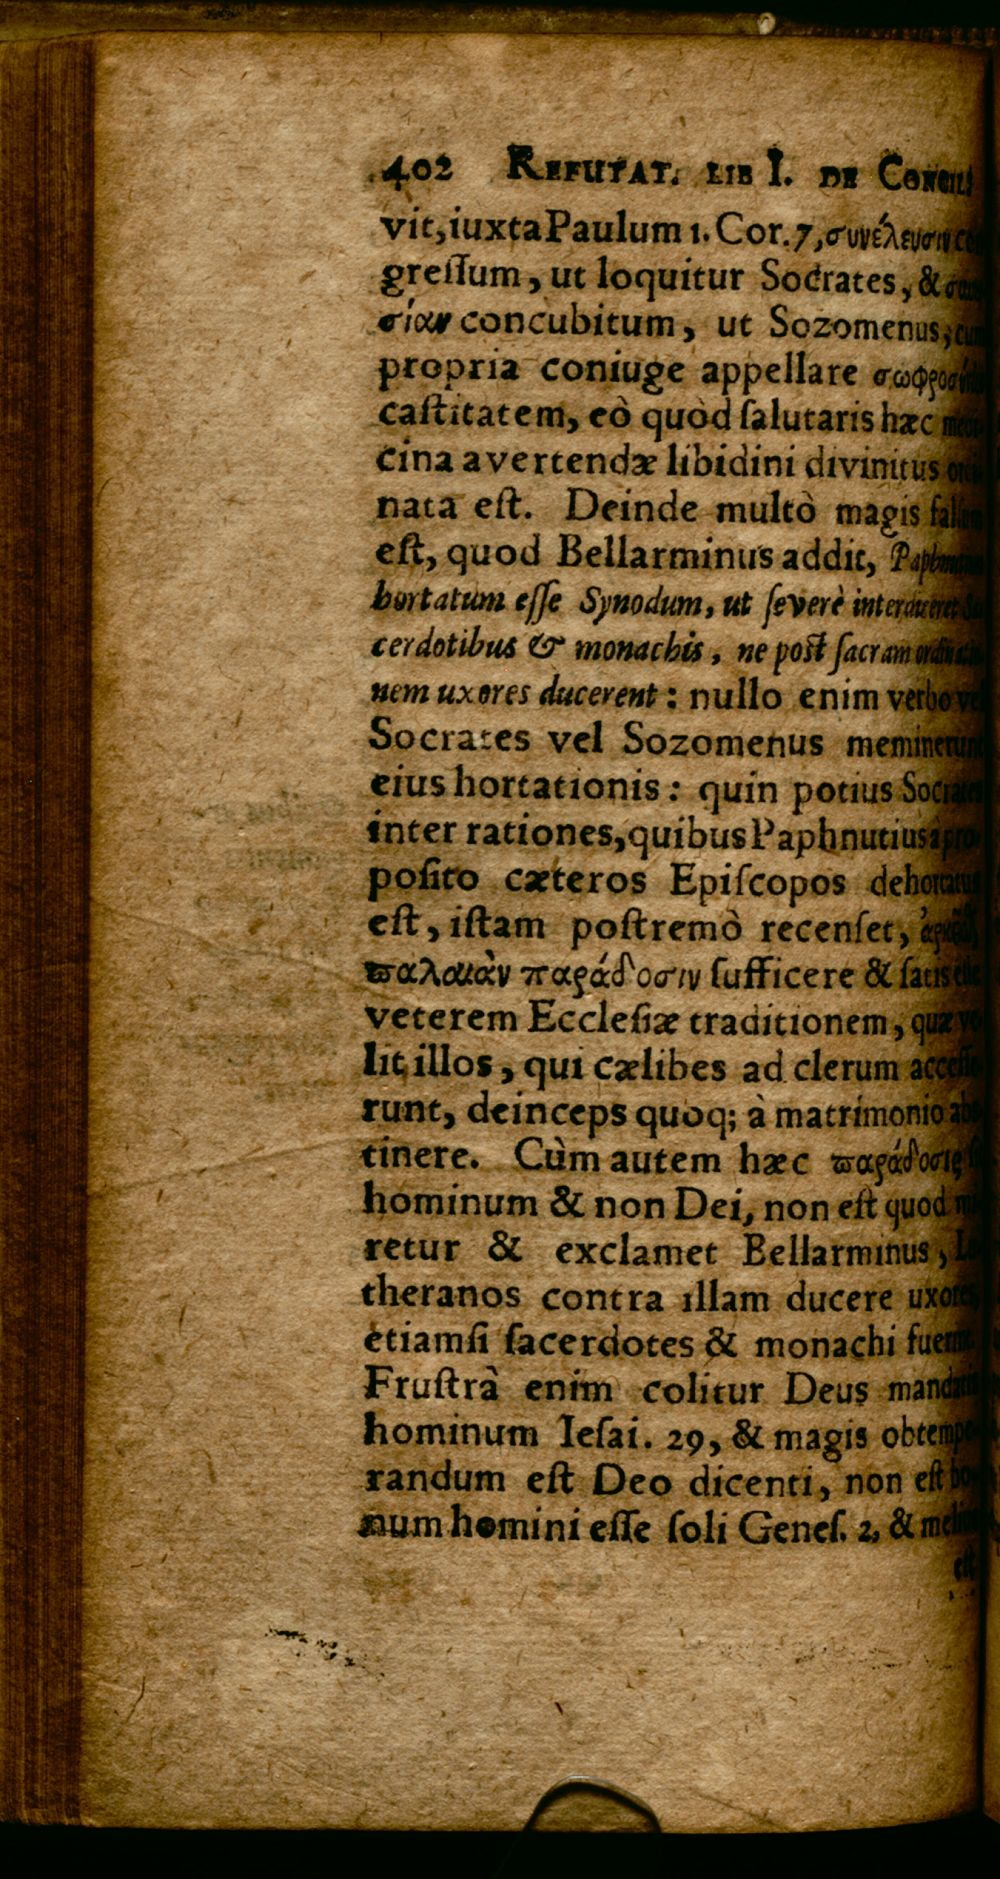 402 REFUTAT. LIB I. DE CONCIL.
vit, iuxta Paulum 1. Cor. 7, συνέλευσιν con
greſſum, ut loquitur Socrates, &
σίαν concubitum, ut Sozomenus, cum
propria coniuge appellare σωφροσύνην
caſtitatem, eò quòd ſalutaris hæc medi
cina avertendæ libidini divinitus ordi
nata eſt. Deinde multò magis falſum
eſt, quod Bellarminus addit, Paphnutium
hortatum eſſe Synodum, ut ſeverè interdiceret Sa
cerdotibus & monachis, ne poſt ſacram ordinatio
nem uxores ducerent: nullo enim verbo vel
Socrates vel Sozomenus meminerunt
eius hortationis: quin potius Socrates
inter rationes, quibus Paphnutius à pro
poſito cæteros Epiſcopos dehortatus
eſt, iſtam poſtremò recenſet,
παλαιὰν παράδοσιν ſufficere & ſatis eſſe
veterem Eccleſiæ traditionem, quæ ve
lit illos, qui cælibes ad clerum acceſſe
runt, deinceps quoq; à matrimonio abs
tinere. Cùm autem hæc παράδοσις ſit
hominum & non Dei, non eſt quod mi
retur & exclamet Bellarminus, Lu
theranos contra illam ducere uxores,
etiamſi ſacerdotes & monachi fuerint.
Fruſtrà enim colitur Deus mandatis
hominum Ieſai. 29, & magis obtempe
randum eſt Deo dicenti, non eſt bo
num homini eſſe ſoli Geneſ. 2, & melius
eſt